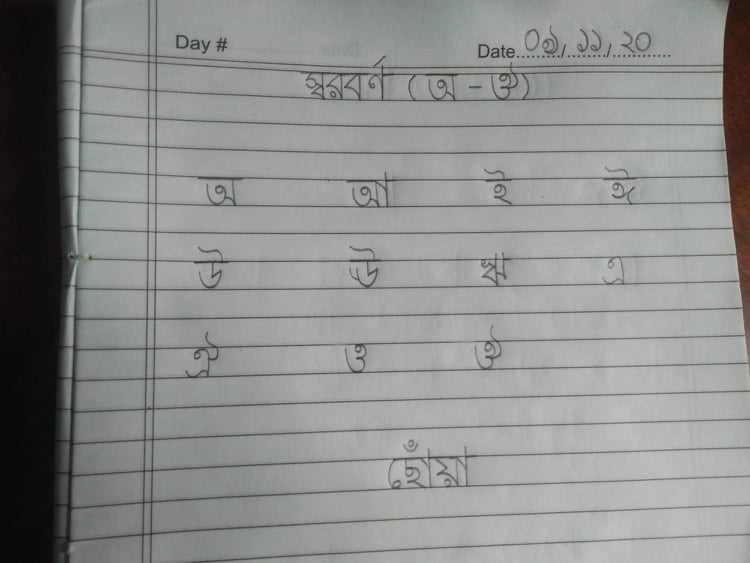 Day #
Date ০১, ১১, ২০
স্বরবর্ণ (অ - ঔ)
অ আ ই ঈ
উ ঊ ঋ এ
ঐ ও ঔ
ছোঁয়া